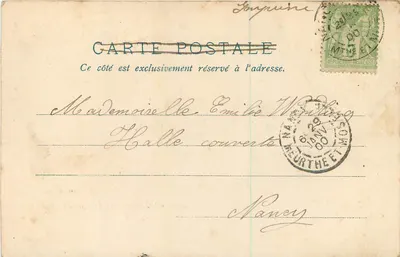 Imprimé
CARTE POSTALE
Ce côté est exclusivement réservé à l'adresse.
Mademoiselle Emilie
Halle couverte
Nancy
NANCY
MEURTHE ET MOS
29
JANV
00